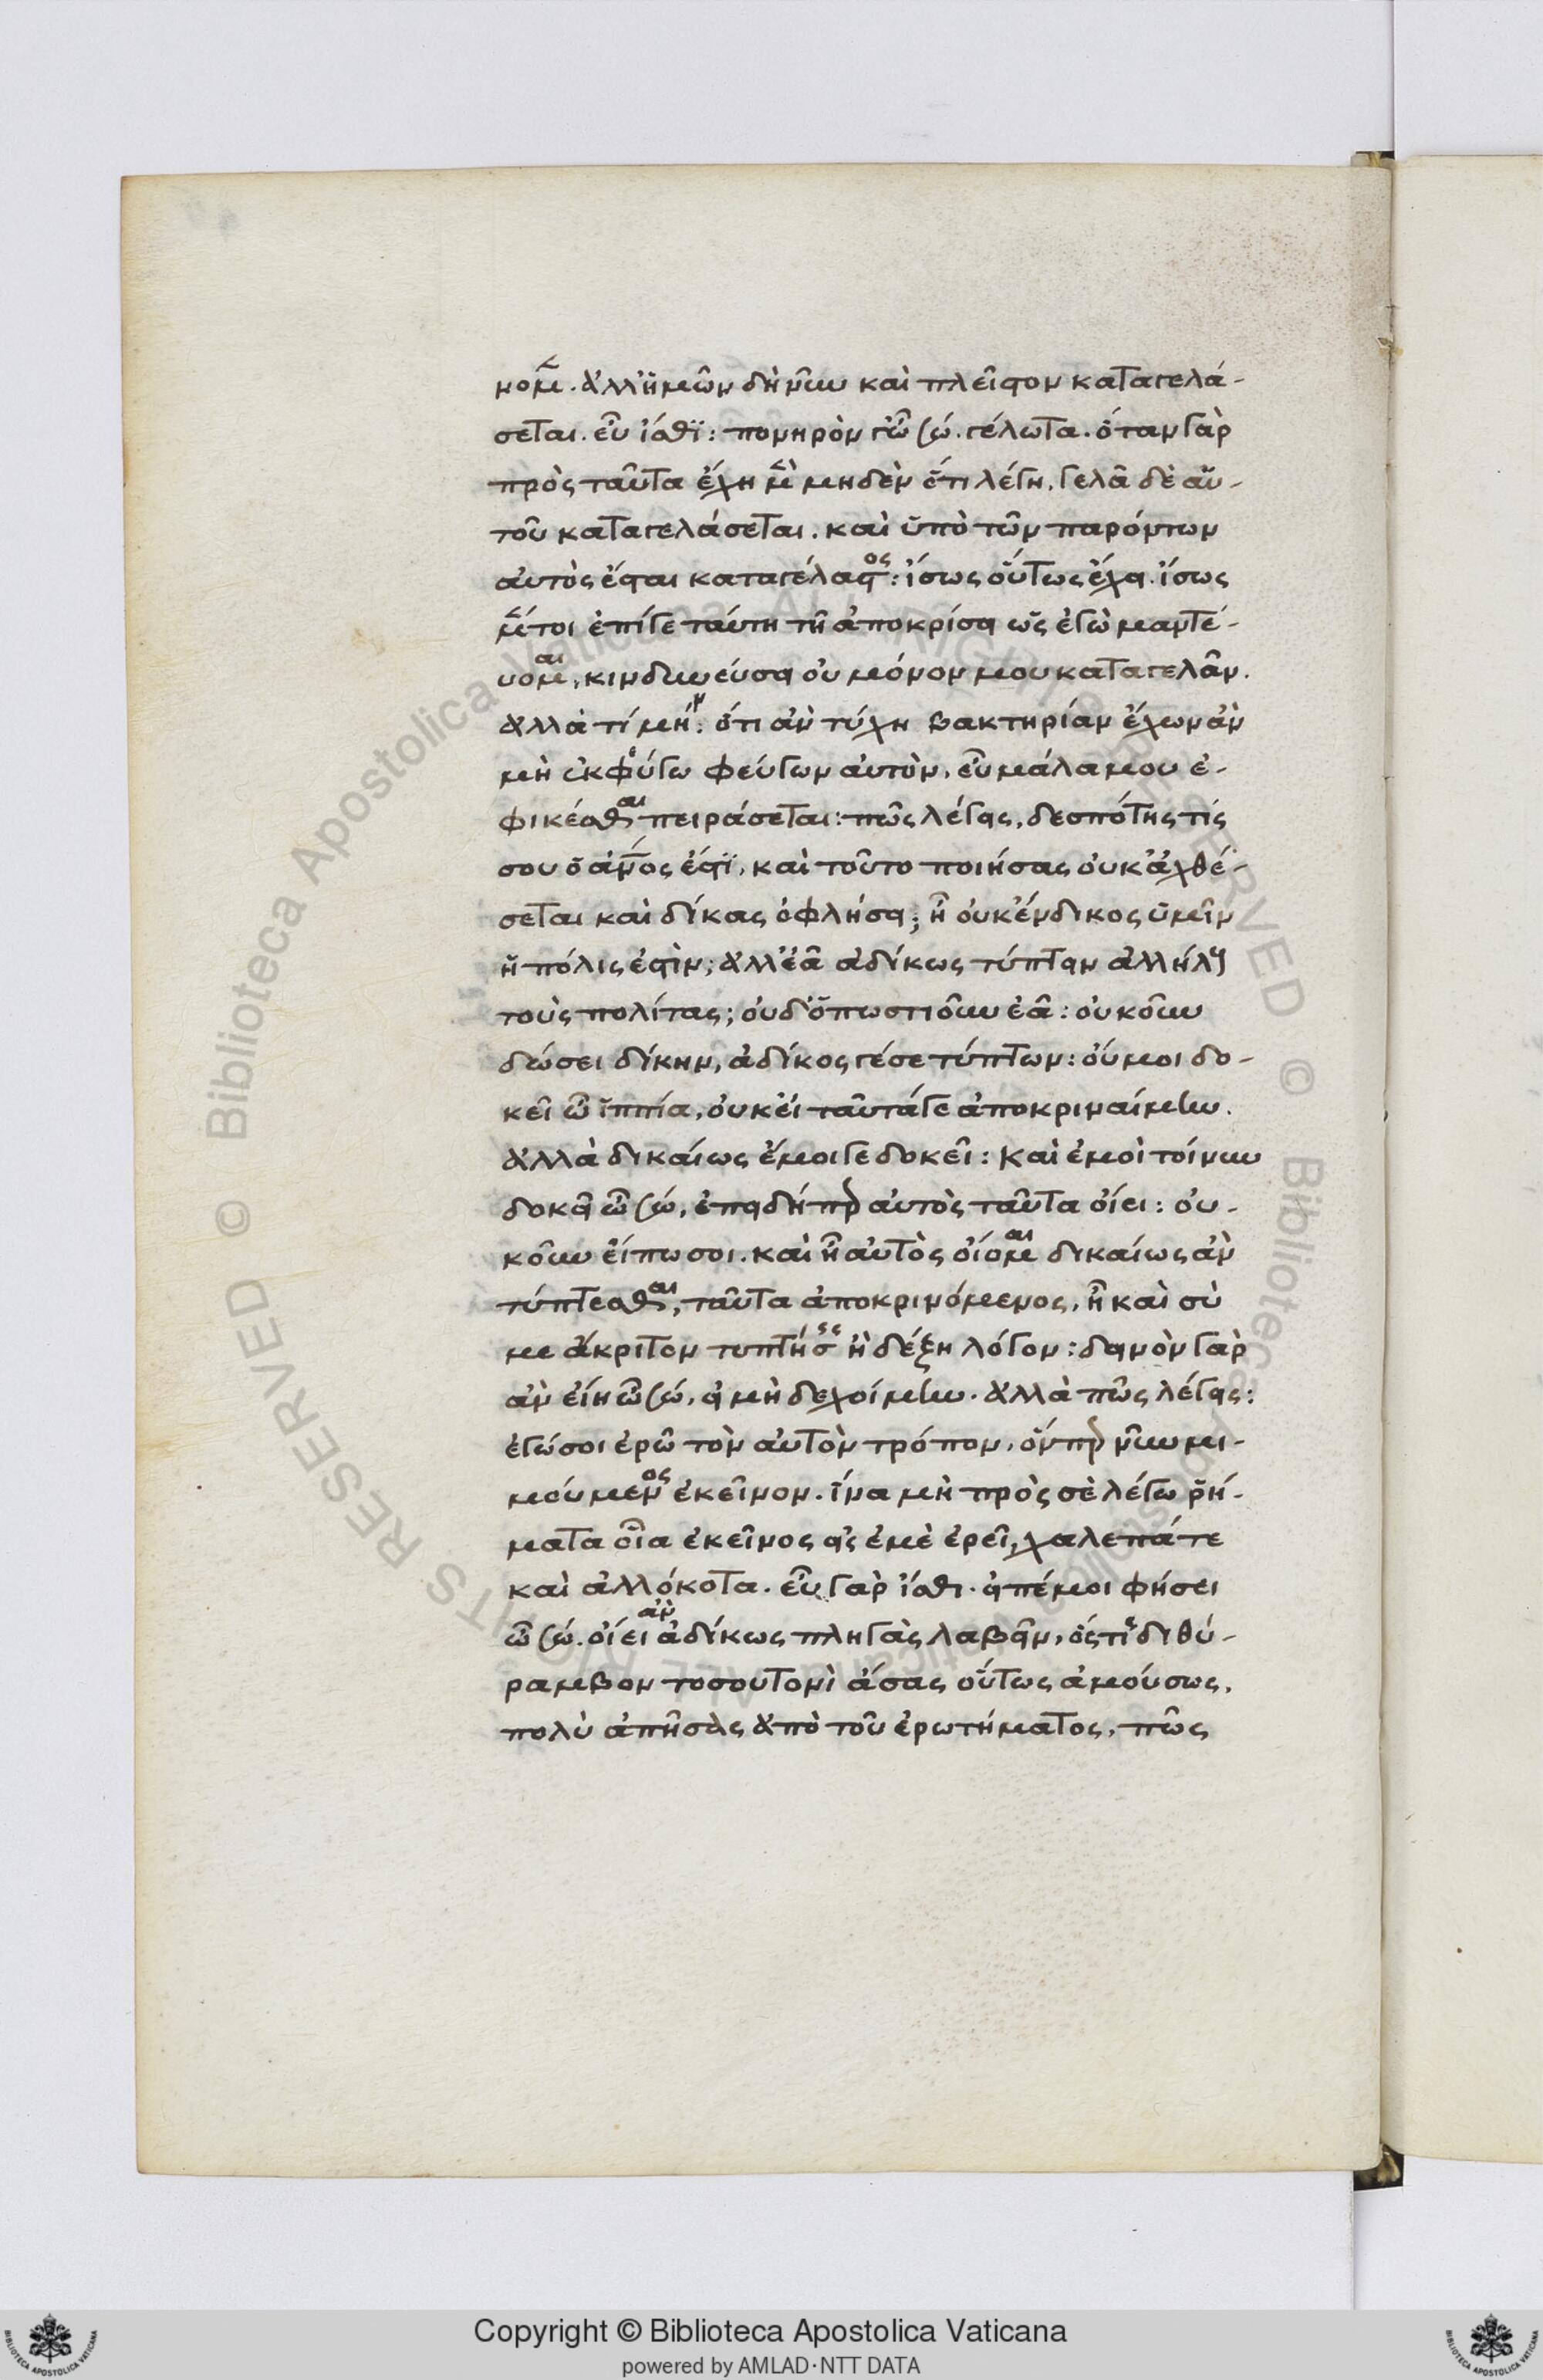 νομεν. ἀλλ' ἡμῶν δὴ νῦν καὶ πλεῖστον καταγελά-
σεται. εὖ ἴσθι: πονηρὸν γ' ὦ σώ. γέλωτα. ὅταν γὰρ
πρὸς ταῦτα ἔχη μὲν μηδὲν ὅτι λέγη, γελᾶ δὲ αὐ-
τοῦ καταγελάσεται. καὶ ὑπὸ τῶν παρόντων
αὐτὸς ἔσται καταγέλαστος: ἴσως οὕτως ἔχει. ἴσως
μέντοι ἐπί γε ταύτη τῆ ἀποκρίσει ὡς ἐγὼ μαντεύ-
υομαι, κινδυνεύσει οὐ μόνον μου καταγελᾶν.
ἀλλὰ τί μήν: ὅτι ἂν τύχη βακτηρίαν ἔχων ἂν
μὴ ἐκφύγω φεύγων αὐτὸν, εὖ μάλα μου ἐ-
φικέσθαι πειράσεται: πῶς λέγεις, δεσπότης τίς
σου ὁ ἄνθρωπος ἐστὶ, καὶ τοῦτο ποιήσας οὐκ ἀχθέ-
σεται καὶ δίκας ὀφλήσει; ἢ οὐκ ἔνδικος ὑμῖν
ἡ πόλις ἐστὶν; ἀλλ' ἐᾶ ἀδίκως τύπτειν ἀλλήλους
τοὺς πολίτας; οὐδ' ὁπωστιοῦν ἐᾶ: οὐκοῦν
δώσει δίκην, ἀδίκος γέ σε τύπτων: οὔ μοι δο-
κεῖ ὦ ἱππία, οὐκ εἰ ταῦτά γε ἀποκριναίμην.
ἀλλὰ δικαίως ἔμοιγε δοκεῖ: Καὶ ἐμοὶ τοίνυν
δοκεῖ ὦ σώ, ἐπειδήπερ αὐτὸς ταῦτα οἴει: οὐ-
κοῦν εἴπω σοι. καὶ ἧ αὐτὸς οἴομαι δικαίως ἂν
τύπτεσθαι, ταῦτα ἀποκρινόμενος, ἢ καὶ σὺ
με ἄκριτον τυπτήσεις ἢ δέξη λόγον: δεινὸν γὰρ
ἂν εἴη ὦ σώ, εἰ μὴ δεχοίμην. ἀλλὰ πῶς λέγεις:
ἐγώ σοι ἐρῶ τὸν αὐτὸν τρόπον, ὅνπερ νῦν μι-
μούμενος ἐκεῖνον. ἵνα μὴ πρὸς σὲ λέγω ῥή-
ματα οἷα ἐκεῖνος εἰς ἐμὲ ἐρεῖ, χαλεπά τε
καὶ ἀλλόκοτα. εὖ γὰρ ἴσθι. εἰπέ μοι φήσει
ὦ σώ. οἴει ἂν ἀδίκως πληγὰς λαβεῖν, ὅςτις διθύ-
ραμβον τοσουτονὶ ᾄσας οὕτως ἀμούσως,
πολὺ ἀπῆσας ἀπὸ τοῦ ἐρωτήματος, πῶς
Copyright © Biblioteca Apostolica Vaticana
powered by AMLAD·NTT DATA